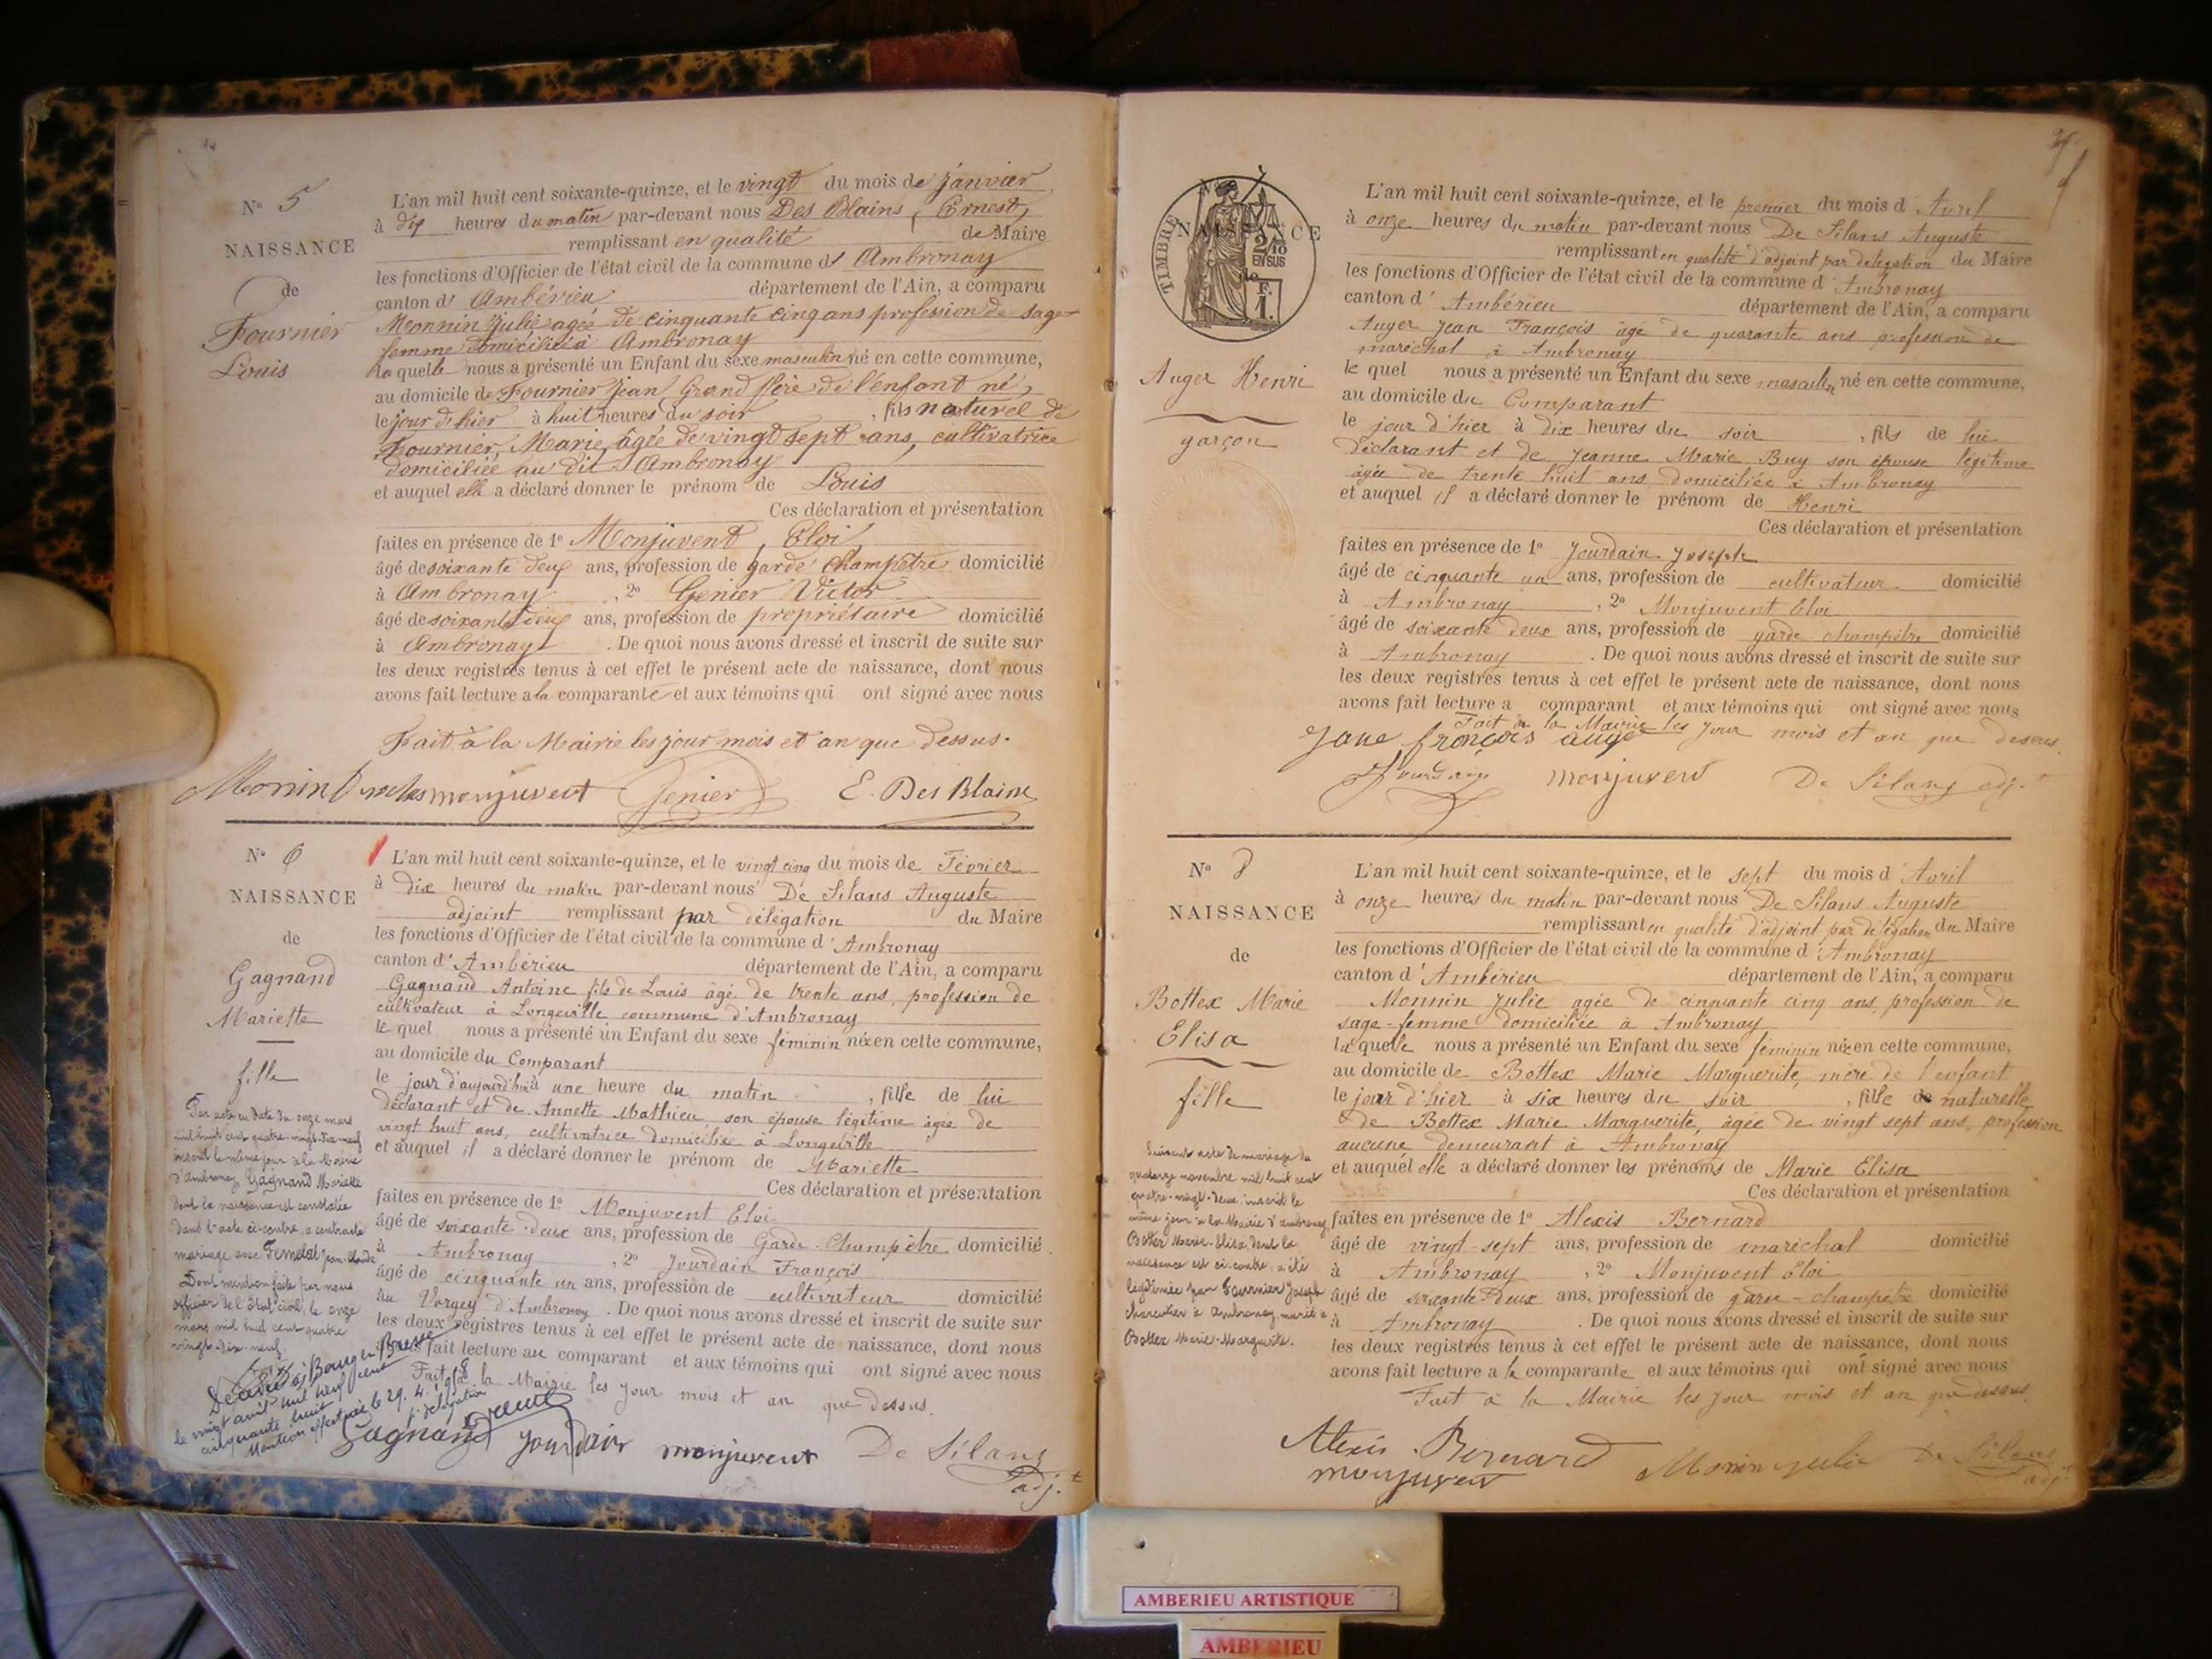 Nº 5
NAISSANCE
de
Fournier
Louis
L'an mil huit cent soixante-quinze, et le vingt du mois de janvier
à dix heures du matin par-devant nous Des Blains, Ernest,
remplissant en qualité de Maire
les fonctions d'Officier de l'état civil de la commune d' Ambronay
canton d' Ambérieu département de l'Ain, a comparu
Monnin Julie agée de cinquante cinq ans profession de sage-
femme domiciliée à Ambronay
laquelle nous a présenté un Enfant du sexe masculin né en cette commune,
au domicile de Fournier Jean Grand Père de l'enfant né,
le jour d'hier à huit heures du soir , fils naturel de
Fournier, Marie, âgée de vingt sept ans, cultivatrice
domiciliée au dit Ambronay
et auquel elle a déclaré donner le prénom de Louis
Ces déclaration et présentation
faites en présence de 1º Monjuvent, Eloi
âgé de soixante deux ans, profession de garde Champêtre domicilié
à Ambronay , 2º Genier Victor
âgé de soixante deux ans, profession de propriétaire domicilié
à Ambronay . De quoi nous avons dressé et inscrit de suite sur
les deux registres tenus à cet effet le présent acte de naissance, dont nous
avons fait lecture a la comparante et aux témoins qui ont signé avec nous
Fait à la Mairie les jour mois et an que dessus.
Monin monjuvent Genier E. Des Blains
Nº 6
NAISSANCE
de
Gagnand
Mariette
fille
Par acte en date du onze mars
mil huit cent quatre-vingt-dix-neuf
inscrit le même jour à la Mairie
d'Ambronay, Gagnand Mariette
dont la naissance est constatée
dans l'acte ci-contre, a contracté
mariage avec Jean-Claude
Dont mention faite par nous
officier de l'état civil, le onze
mars mil huit cent quatre
vingt-dix-neuf
Décédée à Bourg en Bresse
le vingt avril mil neuf cent
cinquante huit
Mention effectuée le 29.4.1958
p. délégation
L'an mil huit cent soixante-quinze, et le vingt cinq du mois de Février
à dix heures du matin par-devant nous De Silans Auguste
adjoint remplissant par délégation du Maire
les fonctions d'Officier de l'état civil de la commune d' Ambronay
canton d' Ambérieu département de l'Ain, a comparu
Gagnand Antoine fils de Louis âgé de trente ans, profession de
cultivateur à Longeville commune d'Ambronay
le quel nous a présenté un Enfant du sexe féminin née en cette commune,
au domicile du Comparant
le jour d'aujourd'hui à une heure du matin , fille de lui
déclarant et de Annette Mathieu, son épouse légitime âgée de
vingt huit ans, cultivatrice domiciliée à Longeville
et auquel il a déclaré donner le prénom de Mariette
Ces déclaration et présentation
faites en présence de 1º Monjuvent Eloi
âgé de soixante-deux ans, profession de Garde-Champêtre domicilié
à Ambronay , 2º Jourdain François
âgé de cinquante un ans, profession de cultivateur domicilié
au d'Ambronay . De quoi nous avons dressé et inscrit de suite sur
les deux registres tenus à cet effet le présent acte de naissance, dont nous
fait lecture au comparant et aux témoins qui ont signé avec nous
Fait à la Mairie les jour mois et an que dessus.
Gagnand Jourdain monjuvent De Silans
adj.t
TIMBRE
NAISSANCE
2/10
EN SUS
1 F.
Auger Henri
garçon
L'an mil huit cent soixante-quinze, et le premier du mois d' Avril
à onze heures du matin par-devant nous De Silans Auguste
remplissant en qualité d'adjoint par délégation du Maire
les fonctions d'Officier de l'état civil de la commune d' Ambronay
canton d' Ambérieu département de l'Ain, a comparu
Auger Jean François âgé de quarante ans profession de
maréchal à Ambronay
le quel nous a présenté un Enfant du sexe masculin né en cette commune,
au domicile du Comparant
le jour d'hier à dix heures du soir , fils de lui
déclarant et de Jeanne Marie Buy son épouse légitime
âgée de trente huit ans domiciliée à Ambronay
et auquel il a déclaré donner le prénom de Henri
Ces déclaration et présentation
faites en présence de 1º Jourdain Joseph
âgé de cinquante un ans, profession de cultivateur domicilié
à Ambronay , 2º Monjuvent Eloi
âgé de soixante deux ans, profession de garde champêtre domicilié
à Ambronay . De quoi nous avons dressé et inscrit de suite sur
les deux registres tenus à cet effet le présent acte de naissance, dont nous
avons fait lecture a comparant et aux témoins qui ont signé avec nous
Fait à la Mairie les jour mois et an que dessus.
Jane françois auger
Jourdain monjuvent De Silans adj.t
Nº 8
NAISSANCE
de
Bottex Marie
Elisa
fille
Suivant acte de mariage du
quatorze novembre mil huit cent
quatre-vingt-deux, inscrit le
même jour à la Mairie d'Ambronay,
Bottex Marie-Elisa dont la
naissance est ci-contre, a été
légitimée par Fournier Joseph
charcutier à Ambronay, marié à
Bottex Marie-Marguerite.
L'an mil huit cent soixante-quinze, et le sept du mois d' Avril
à onze heures du matin par-devant nous De Silans Auguste
remplissant en qualité d'adjoint par délégation du Maire
les fonctions d'Officier de l'état civil de la commune d' Ambronay
canton d' Ambérieu département de l'Ain, a comparu
Monnin Julie agée de cinquante cinq ans, profession de
sage-femme domiciliée à Ambronay
la quelle nous a présenté un Enfant du sexe féminin née en cette commune,
au domicile de Bottex Marie Marguerite, mère de l'enfant
le jour d'hier à six heures du soir , fille de naturelle
de Bottex Marie Marguerite, âgée de vingt sept ans, profession
aucune demeurant à Ambronay
et auquel elle a déclaré donner les prénoms de Marie Elisa
Ces déclaration et présentation
faites en présence de 1º Alexis Bernard
âgé de vingt-sept ans, profession de maréchal domicilié
à Ambronay , 2º Monjuvent Eloi
âgé de soixante-deux ans, profession de garde-champêtre domicilié
à Ambronay . De quoi nous avons dressé et inscrit de suite sur
les deux registres tenus à cet effet le présent acte de naissance, dont nous
avons fait lecture a la comparante et aux témoins qui ont signé avec nous
Fait à la Mairie les jour mois et an que dessus.
Alexis Bernard
monjuvent Monin Julie De Silans
adj.t
AMBERIEU ARTISTIQUE
AMBERIEU